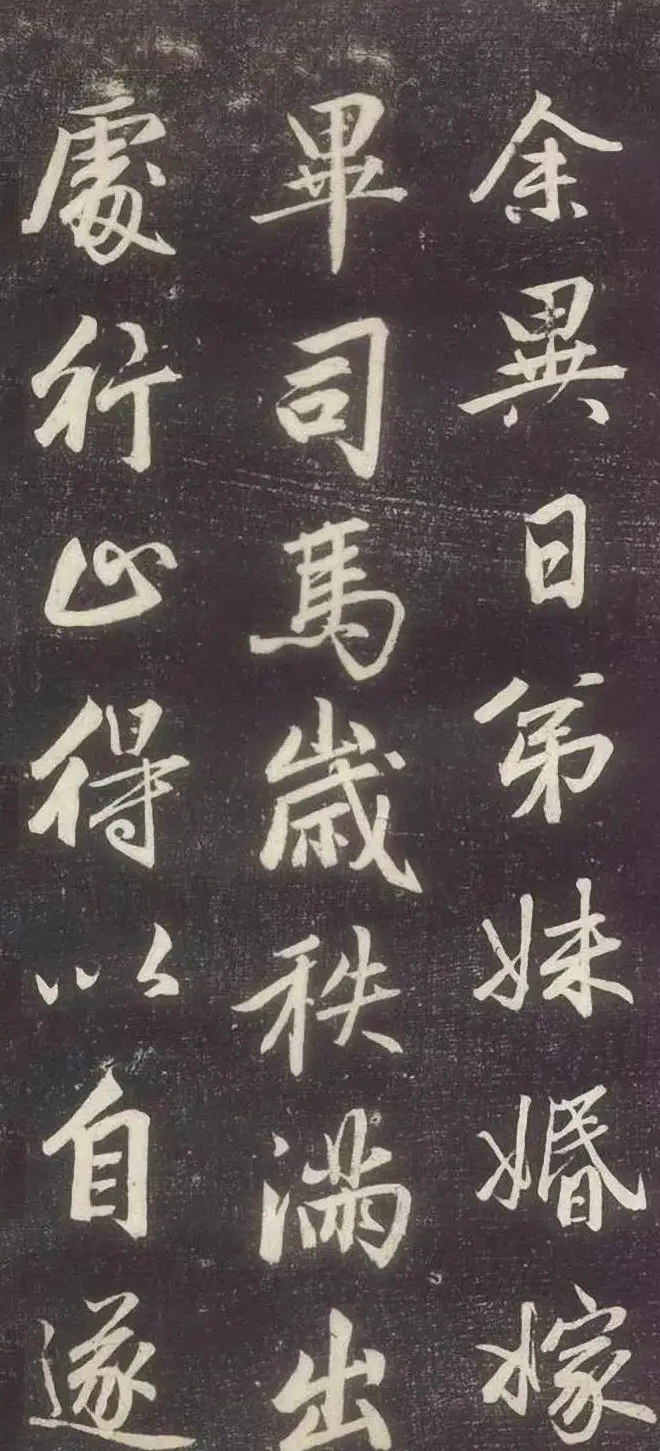 余異日弟妹婚嫁
畢司馬歲秩滿出
處行止得以自遂